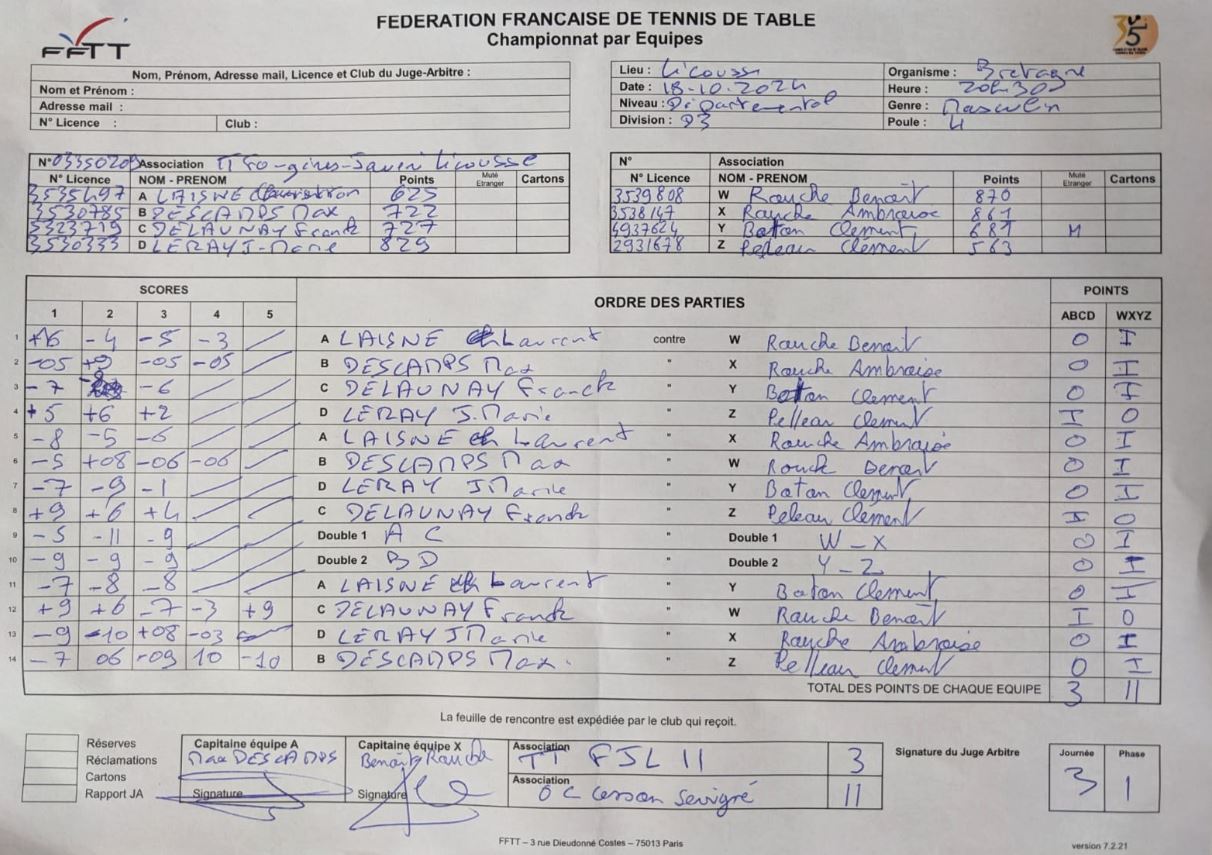 FEDERATION FRANCAISE DE TENNIS DE TABLE
Championnat par Equipes
FFTT
35
Nom, Prénom, Adresse mail, Licence et Club du Juge-Arbitre :
Nom et Prénom :
Adresse mail :
N° Licence : Club :
Lieu : Licousse Organisme : Bretagne
Date : 18-10.2024 Heure : 20h30
Niveau : Départemental Genre : Masculin
Division : D3 Poule : 4
N° Association
N° Licence NOM - PRENOM Points Muté Etranger Cartons
3535497 A LAISNE 625
3530785 B DESCAMPS Max 722
5323719 C DELAUNAY Franck 727
3530333 D LERAY J-Marie 829
N° Association
N° Licence NOM - PRENOM Points Muté Etranger Cartons
3539808 W Rauche Benoît 870
3538147 X Rauche Ambroise 861
4937624 Y Baton Clement 681 M
2931678 Z Peleau Clément 563
SCORES ORDRE DES PARTIES POINTS
1 2 3 4 5 ABCD WXYZ
1 -4 -5 -3 A LAISNE Laurent contre W Rauche Benoit 0 I
2 -05 +9 -05 -05 B DESCAMPS Max " X Rauche Ambroise 0 I
3 -7 -6 C DELAUNAY Franck " Y Baton Clement 0 I
4 +5 +6 +2 D LERAY J.Marie " Z Pelleau Clement I 0
5 -8 -5 -6 A LAISNE Laurent " X Rauche Ambroise 0 I
6 -5 +08 -06 -06 B DESCAMPS Max " W Rauche Benoit 0 I
7 -7 -9 -1 D LERAY JMarie " Y Baton Clement 0 I
8 +9 +6 +4 C DELAUNAY Franck " Z Peleau Clément I 0
9 -5 -11 -9 Double 1 A C " Double 1 W-X 0 I
10 -9 -9 -9 Double 2 BD " Double 2 Y-Z 0 I
11 -7 -8 -8 A LAISNE Laurent " Y Baton Clement 0 I
12 +9 +6 -7 -3 +9 C DELAUNAY Franck " W Rauche Benoit I 0
13 -9 -10 +08 -03 D LERAY JMarie " X Rauche Ambroise 0 I
14 -7 06 -09 10 -10 B DESCAMPS Max. " Z Pelleau Clement 0 I
TOTAL DES POINTS DE CHAQUE EQUIPE 3 11
La feuille de rencontre est expédiée par le club qui reçoit.
Réserves
Réclamations
Cartons
Rapport JA
Capitaine équipe A
Max DESCAMPS
Signature
Capitaine équipe X
Benoit Rauche
Signature
Association TT FJL 11 3
Association OC Cesson Sevigné 11
Signature du Juge Arbitre
Journée Phase
3 1
FFTT – 3 rue Dieudonné Costes – 75013 Paris
version 7.2.21